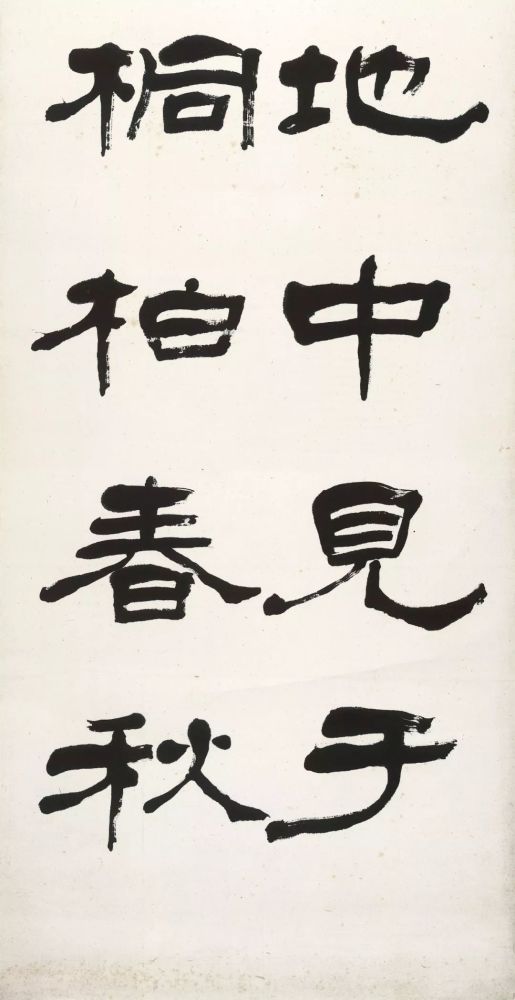 地中見于
桐柏春秋